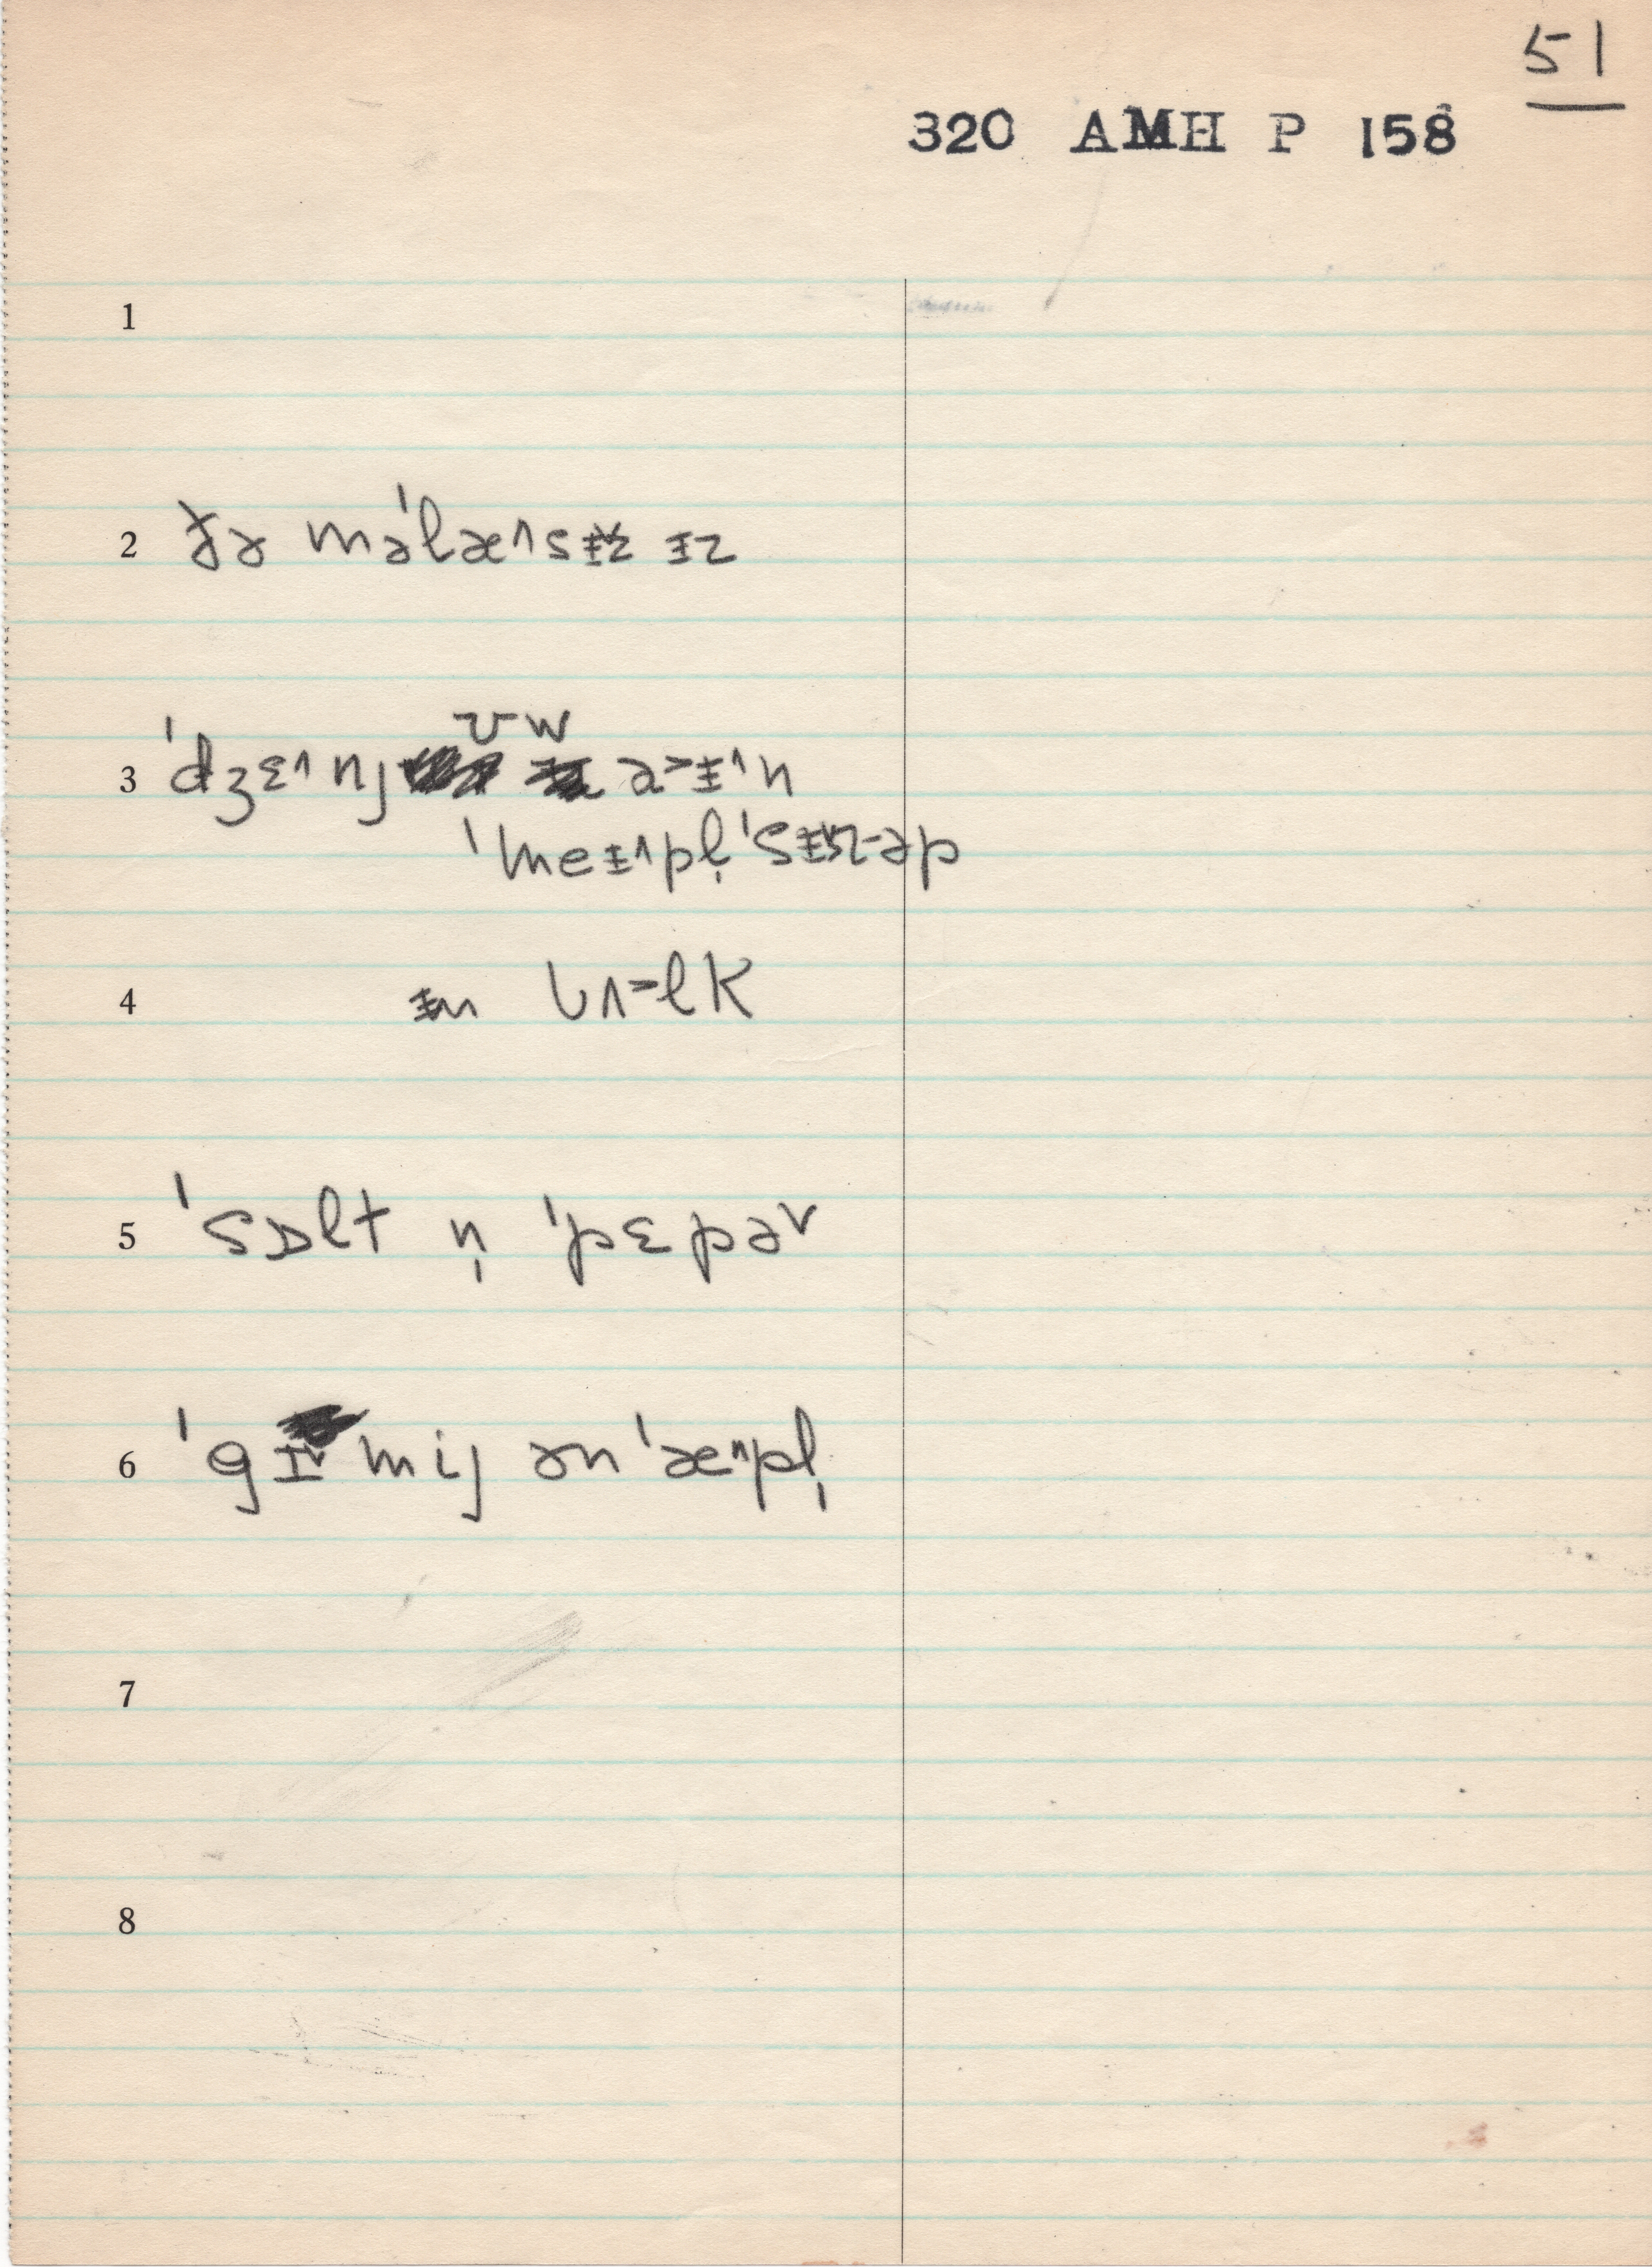 51
320 AMH P 158
1
2 ðə məˈlæ^sɨ˅z ɨz
3 ˈdʒɛ^nj ʊw a˃ɨ^n
ˈmeɨ^pl̩ ˈsɨ˅rəp
4 ɨn bʌ˃lk
5 ˈsɒlt n̩ ˈpɛpə˅
6 ˈgɪ˅ mij ən ˈæ^pl̩
7
8